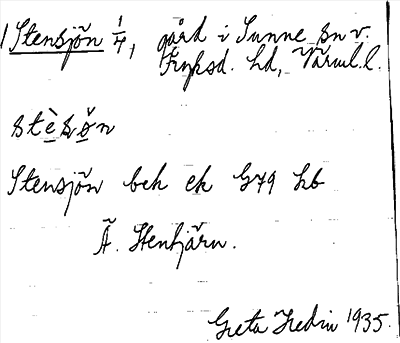 Stensjön 1/4, gård i Sunne sn v.
Fryksd. hd, Värml. l.
stèsön
Stensjön bek ek G79 hb
Ä. Stentjärn.
Greta Hedin 1935.